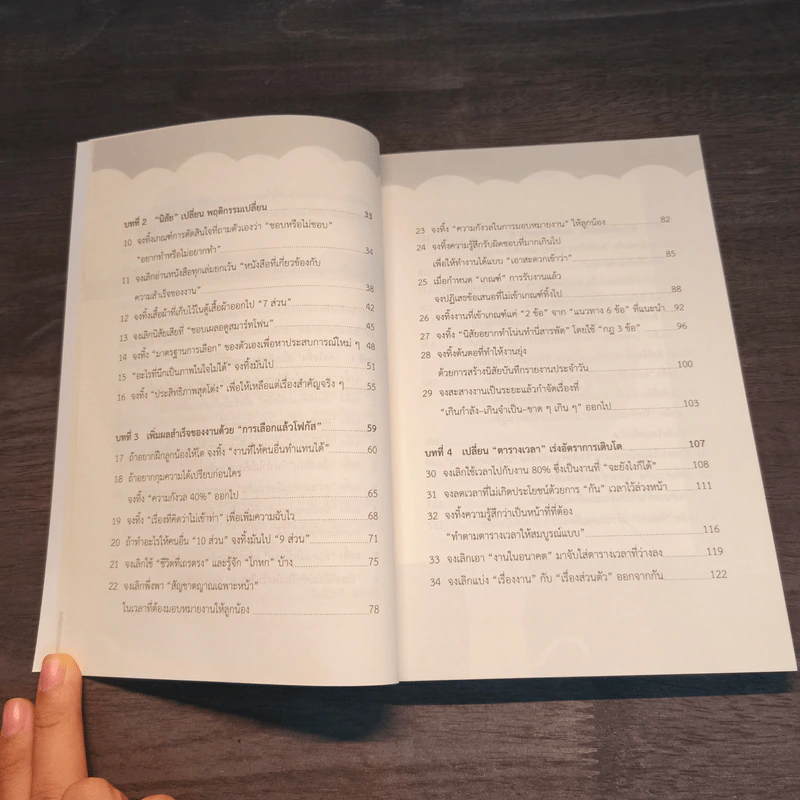 บทที่ 2 "นิสัย" เปลี่ยน พฤติกรรมเปลี่ยน 33
10 จงทิ้งเกณฑ์การตัดสินใจที่ถามตัวเองว่า "ชอบหรือไม่ชอบ"
"อยากทำหรือไม่อยากทำ" 34
11 จงเลิกอ่านหนังสือทุกเล่มยกเว้น "หนังสือที่เกี่ยวข้องกับ
ความสำเร็จของงาน" 38
12 จงทิ้งเสื้อผ้าที่เก็บไว้ในตู้เสื้อผ้าออกไป "7 ส่วน" 42
13 จงเลิกนิสัยเสียที่ "ชอบเผลอดูสมาร์ทโฟน" 45
14 จงทิ้ง "มาตรฐานการเลือก" ของตัวเองเพื่อหาประสบการณ์ใหม่ ๆ 48
15 "อะไรที่นึกเป็นภาพในใจไม่ได้" จงทิ้งมันไป 51
16 จงทิ้ง "ประสิทธิภาพสุดโต่ง" เพื่อให้เหลือแต่เรื่องสำคัญจริง ๆ 55
บทที่ 3 เพิ่มผลสำเร็จของงานด้วย "การเลือกแล้วโฟกัส" 59
17 ถ้าอยากฝึกลูกน้องให้โต จงทิ้ง "งานที่ให้คนอื่นทำแทนได้" 60
18 ถ้าอยากกุมความได้เปรียบก่อนใคร
จงทิ้ง "ความกังวล 40%" ออกไป 65
19 จงทิ้ง "เรื่องที่คิดว่าไม่เข้าท่า" เพื่อเพิ่มความฉับไว 68
20 ถ้าทำอะไรให้คนอื่น "10 ส่วน" จงทิ้งมันไป "9 ส่วน" 71
21 จงเลิกใช้ "ชีวิตที่เถรตรง" และรู้จัก "โกหก" บ้าง 75
22 จงเลิกพึ่งพา "สัญชาตญาณเฉพาะหน้า"
ในเวลาที่ต้องมอบหมายงานให้ลูกน้อง 78
23 จงทิ้ง "ความกังวลในการมอบหมายงาน" ให้ลูกน้อง 82
24 จงทิ้งความรู้สึกรับผิดชอบที่มากเกินไป
เพื่อให้ทำงานได้แบบ "เอาสะดวกเข้าว่า" 85
25 เมื่อกำหนด "เกณฑ์" การรับงานแล้ว
จงปฏิเสธข้อเสนอที่ไม่เข้าเกณฑ์ทิ้งไป 88
26 จงทิ้งงานที่เข้าเกณฑ์แค่ "2 ข้อ" จาก "แนวทาง 6 ข้อ" ที่แนะนำ 92
27 จงทิ้ง "นิสัยอยากทำโน่นทำนี่สารพัด" โดยใช้ "กฎ 3 ข้อ" 96
28 จงทิ้งต้นตอที่ทำให้งานยุ่ง
ด้วยการสร้างนิสัยบันทึกรายงานประจำวัน 100
29 จงสะสางงานเป็นระยะแล้วกำจัดเรื่องที่
"เกินกำลัง–เกินจำเป็น–ขาด ๆ เกิน ๆ" ออกไป 103
บทที่ 4 เปลี่ยน "ตารางเวลา" เร่งอัตราการเติบโต 107
30 จงเลิกใช้เวลาไปกับงาน 80% ซึ่งเป็นงานที่ "จะยังไงก็ได้" 108
31 จงลดเวลาที่ไม่เกิดประโยชน์ด้วยการ "กัน" เวลาไว้ล่วงหน้า 111
32 จงทิ้งความรู้สึกว่าเป็นหน้าที่ที่ต้อง
"ทำตามตารางเวลาให้สมบูรณ์แบบ" 116
33 จงเลิกเอา "งานในอนาคต" มาจับใส่ตารางเวลาที่ว่างลง 119
34 จงเลิกแบ่ง "เรื่องงาน" กับ "เรื่องส่วนตัว" ออกจากกัน 122